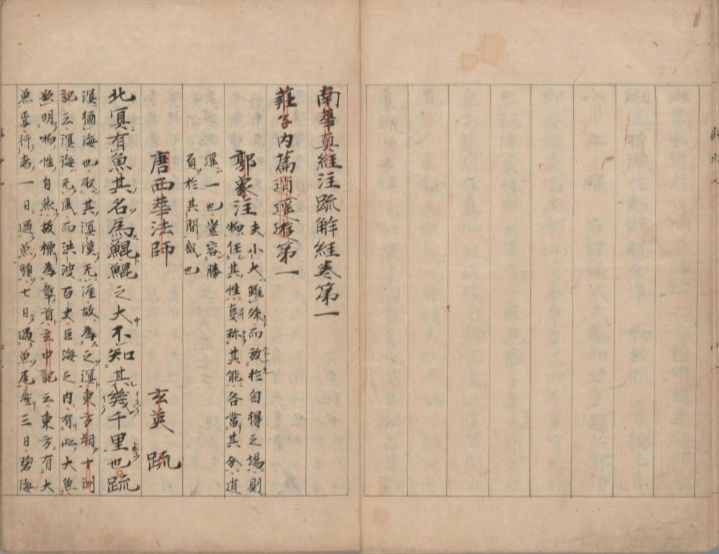 南華真經注疏解經卷第一
莊子内篇逍遥遊第一
郭象注
夫小大雖殊而放於自得之場則
物任其性事称其能各當其分逍
遥一也豈容勝
負於其間哉也
唐西華法師 玄英 疏
北冥有魚其名為鯤鯤之大不知其幾千里也疏
溟猶海也取其溟漠无涯故為之溟東方朔十洲
記云溟海无風而洪波百丈巨海之内有此大魚
欲明物性自然故標為章首玄中記云東方有大
魚焉行者一日過魚頭七日過魚尾産三日碧海